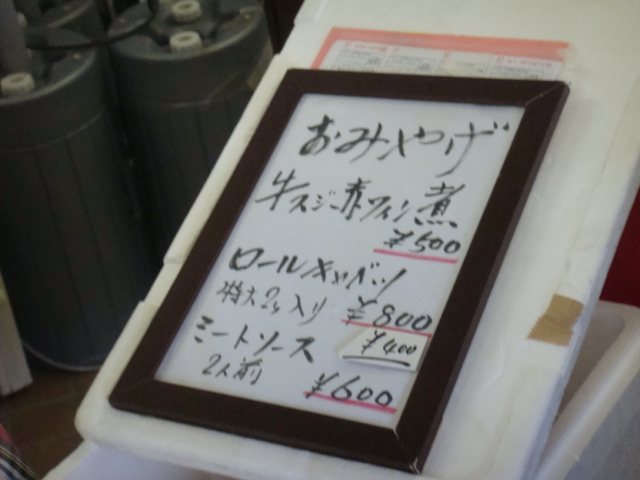 おみやげ
牛スジ赤ワイン煮
¥500
ロールキャベツ
特大2ヶ入り ¥800
¥400
ミートソース
2人前 ¥600